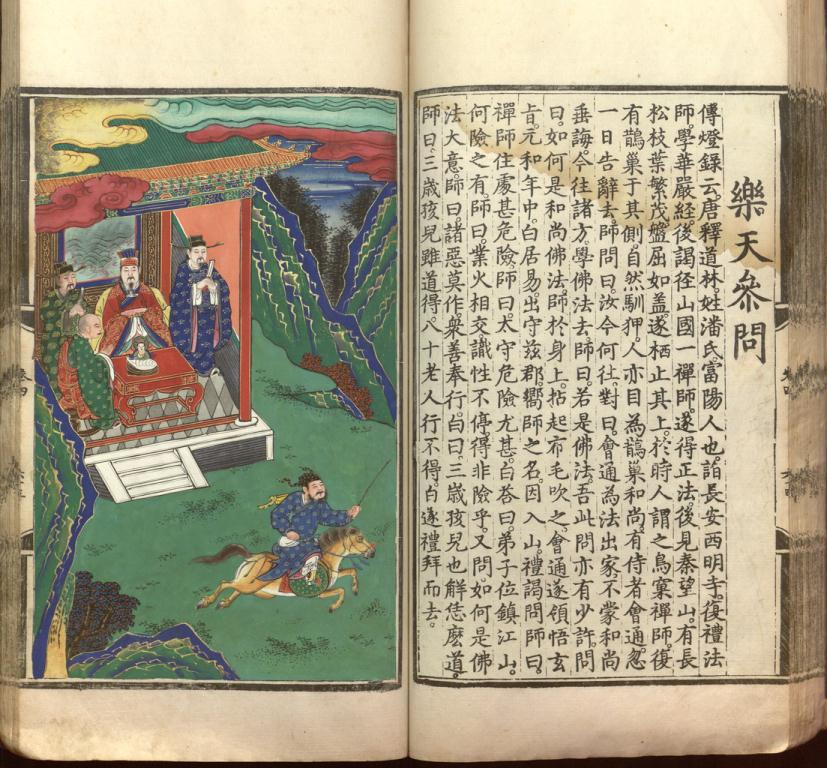 樂天參問
傳燈錄云。唐釋道林。姓潘氏。富陽人也。詣長安西明寺。復禮法
師。學華嚴經。後謁徑山國一禪師。遂得正法。後見秦望山。有長
松枝葉繁茂。盤屈如盖。遂栖止其上。於時人謂之鳥窠禪師。復
有鵲巢于其側。自然馴狎。人亦目為鵲巢和尚。有侍者會通。忽
一日告辭去。師問曰。汝今何往。對曰。會通為法出家。不蒙和尚
垂誨。今往諸方。學佛法去。師曰。若是佛法。吾此問亦有少許。問
曰。如何是和尚佛法。師於身上。拈起布毛吹之。會通遂領悟玄
旨。元和年中。白居易。出守茲郡。嚮師之名。因入山。禮謁問師曰。
禪師住處甚危險。師曰。太守危險尤甚。白荅曰。弟子位鎮江山。
何險之有。師曰。業火相交。識性不停。得非險乎。又問。如何是佛
法大意。師曰。諸惡莫作。衆善奉行。白曰。三歲孩兒也解恁麼道。
師曰。三歲孩兒雖道得。八十老人行不得。白遂禮拜而去。
卷四